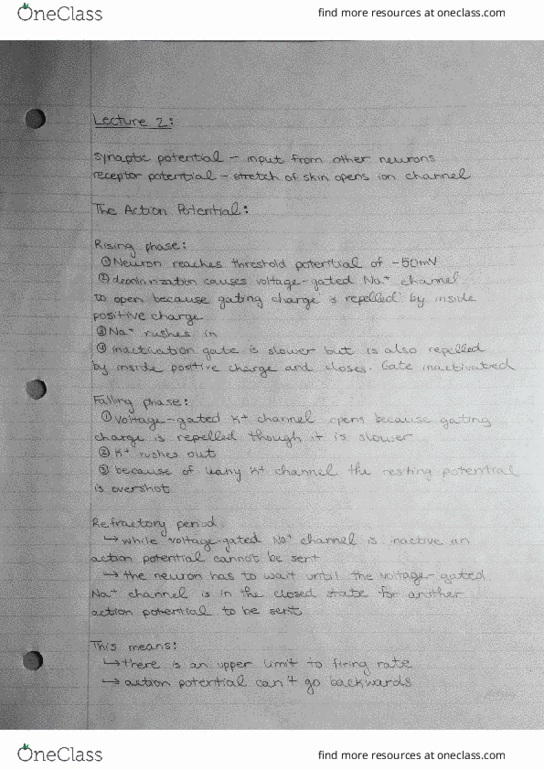 OneClass
find more resources at oneclass.com
Lecture 2:
synaptic potential - input from other neurons
receptor potential - stretch of skin opens ion channel
The Action Potential:
Rising phase:
① Neuron reaches threshold potential of -50mV
② depolarization causes voltage-gated Na⁺ channel
to open because gating charge is repelled by inside
positive charge
③ Na⁺ rushes in
④ inactivation gate is slower but is also repelled
by inside positive charge and closes. Gate inactivated
Falling phase:
① Voltage-gated K+ channel opens because gating
charge is repelled though it is slower
② K+ rushes out
③ because of leaky K+ channel the resting potential
is overshot
Refractory period
↳ while voltage-gated Na⁺ channel is inactive an
action potential cannot be sent
→ the neuron has to wait until the voltage-gated
Na⁺ channel is in the closed state for another
action potential to be sent
This means:
↳ there is an upper limit to firing rate
↳ action potential can't go backwards
OneClass
find more resources at oneclass.com